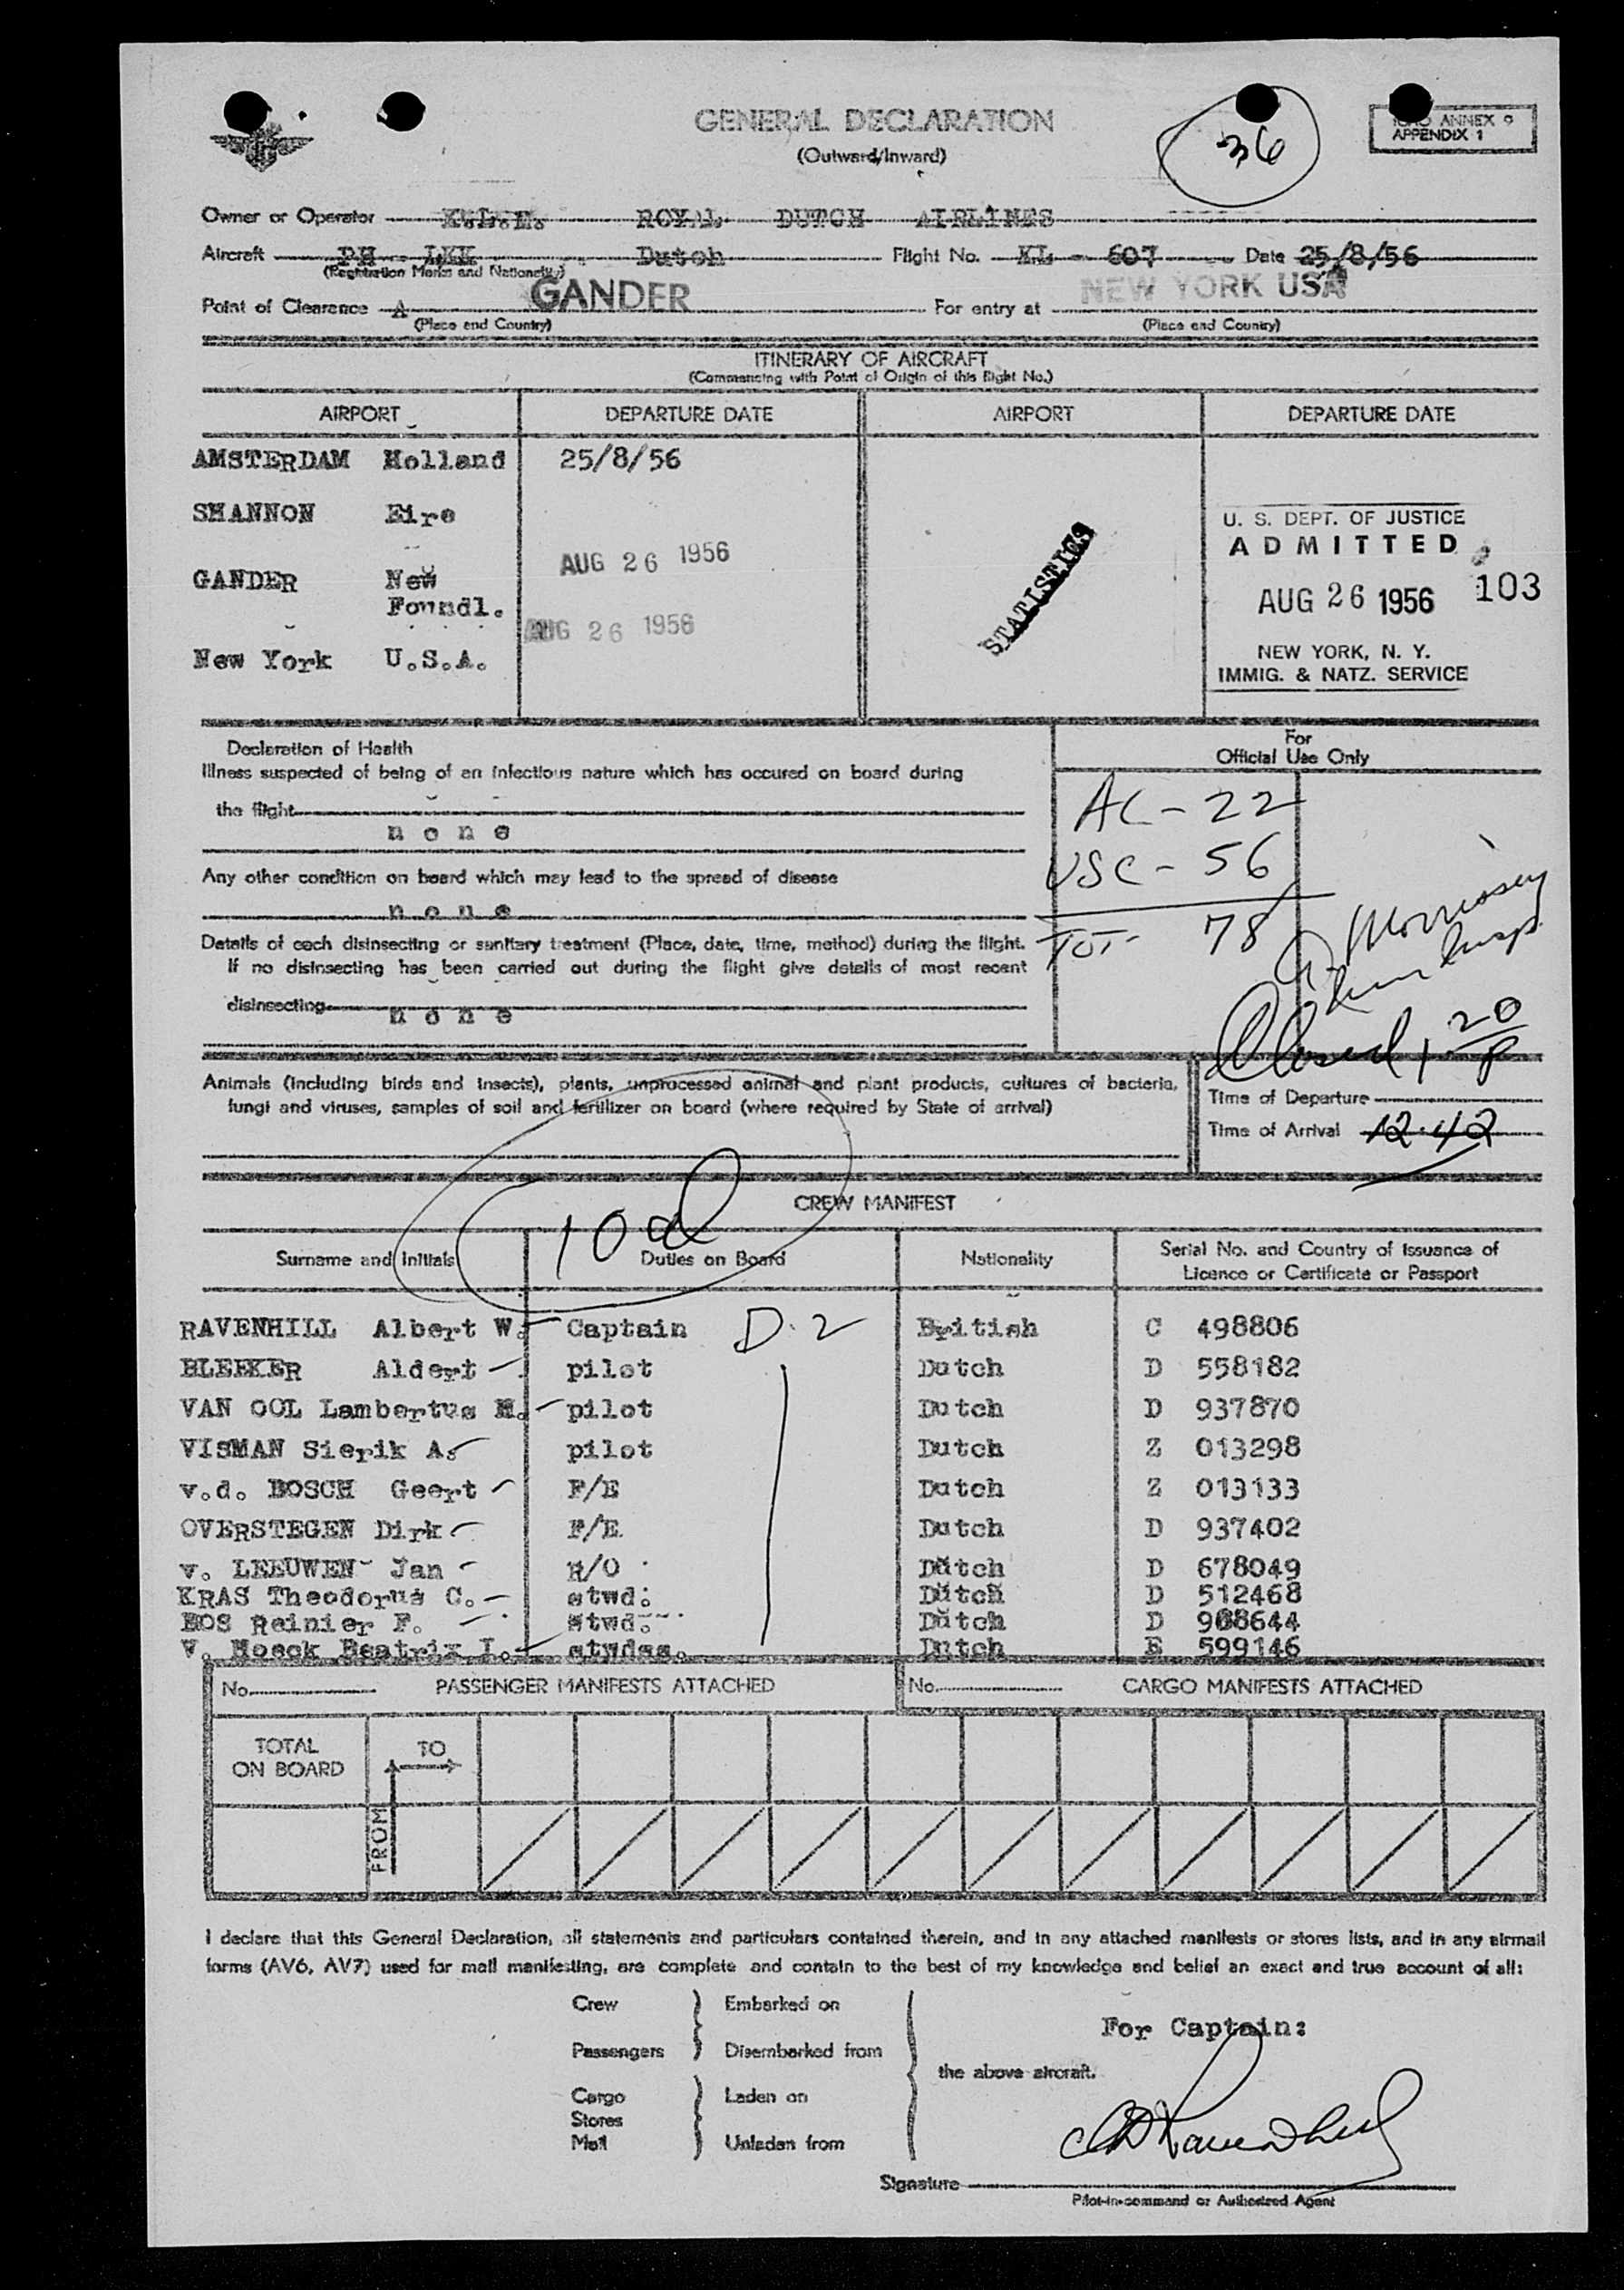 GENERAL DECLARATION
(Outward/Inward)
36
ANNEX 9
APPENDIX 1
Owner or Operator K.L.M. ROYAL DUTCH AIRLINES
Aircraft PH - LKK Dutch Flight No. KL - 607 Date 25/8/56
(Registration Marks and Nationality)
Point of Clearance GANDER For entry at NEW YORK USA
(Place and Country) (Place and Country)
ITINERARY OF AIRCRAFT
(Commencing with Point of Origin of this flight No.)
AIRPORT DEPARTURE DATE AIRPORT DEPARTURE DATE
AMSTERDAM Holland 25/8/56
SHANNON Eire
AUG 26 1956
GANDER New
Foundl.
AUG 26 1956
New York U.S.A.
STATISTICS
U. S. DEPT. OF JUSTICE
ADMITTED
AUG 26 1956 103
NEW YORK, N. Y.
IMMIG. & NATZ. SERVICE
Declaration of Health
Illness suspected of being of an infectious nature which has occured on board during
the flight
none
Any other condition on board which may lead to the spread of disease
none
Details of each disinsecting or sanitary treatment (Place, date, time, method) during the flight.
If no disinsecting has been carried out during the flight give details of most recent
disinsecting
none
For
Official Use Only
AC - 22
USC - 56
TOT - 78
Morrissey
Imm Insp.
Closed 1 20 P
Animals (including birds and insects), plants, unprocessed animal and plant products, cultures of bacteria,
fungi and viruses, samples of soil and fertilizer on board (where required by State of arrival)
Time of Departure
Time of Arrival 12.42
CREW MANIFEST
10
Surname and Initials Duties on Board Nationality Serial No. and Country of Issuance of
Licence or Certificate or Passport
RAVENHILL Albert W. Captain D.2 British C 498806
BLEEKER Aldert pilot Dutch D 558182
VAN OOL Lambertus M. pilot Dutch D 937870
VISMAN Sierik A. pilot Dutch Z 013298
v.d. BOSCH Geert F/E Dutch Z 013133
OVERSTEGEN Dirk F/E Dutch D 937402
v. LEEUWEN Jan R/O Dutch D 678049
KRAS Theodorus C. stwd. Dutch D 512468
BOS Reinier F. stwd. Dutch D 968644
v. Hoeck Beatrix I. stwdss. Dutch E 599146
No. PASSENGER MANIFESTS ATTACHED No. CARGO MANIFESTS ATTACHED
TOTAL
ON BOARD
TO
FROM
I declare that this General Declaration, all statements and particulars contained therein, and in any attached manifests or stores lists, and in any airmail
forms (AV6, AV7) used for mail manifesting, are complete and contain to the best of my knowledge and belief an exact and true account of all:
Crew Embarked on
Passengers Disembarked from
Cargo Laden on
Stores
Mail Unladen from
the above aircraft.
For Captain:
AW Ravenhill
Signature
Pilot-in-command or Authorized Agent